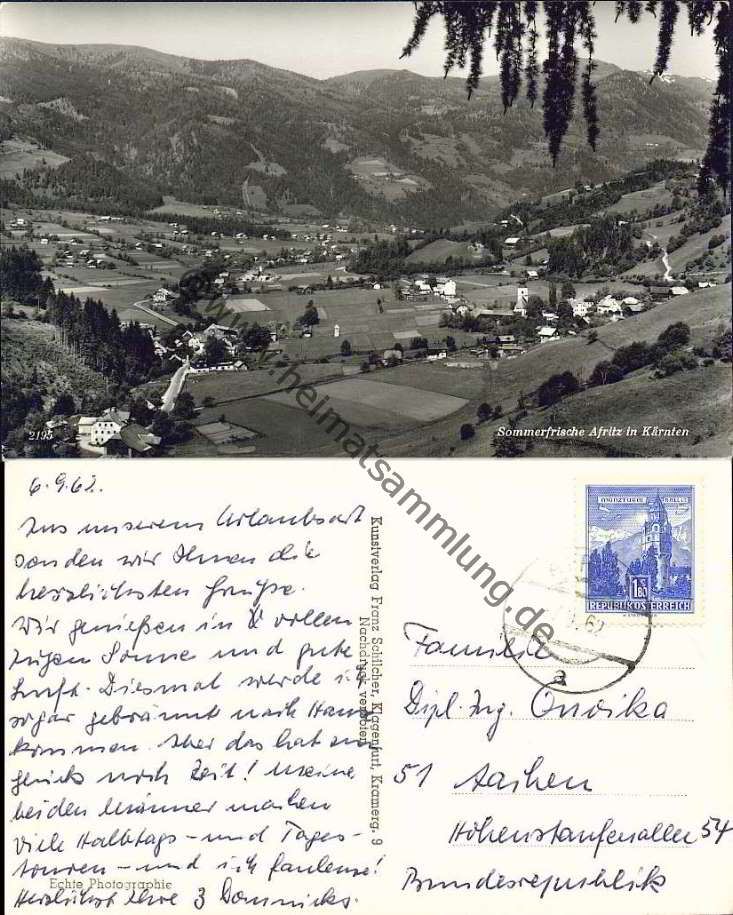 2195
Sommerfrische Afritz in Kärnten
heimatsammlung.de
6.9.62.
Aus unserem Urlaubsort
senden wir Ihnen die
herzlichsten Grüße.
Wir genießen in vollen
Zügen Sonne und gute
Luft. Diesmal werde ich
sogar gebräunt nach Haus
kommen. Aber das hat
noch Zeit! Meine
beiden Männer machen
viele Halbtags- und Tages-
touren - und ich faulenze!
Herzlichst Ihre 3 Domnicks.
Echte Photographie
Kunstverlag Franz Schilcher, Klagenfurt, Kramerg. 9
Nachdruck verboten
MÜNZTURM HALL
1.80
REPUBLIK ÖSTERREICH
62
a
Familie
Dipl. Ing. Onderka
51 Aachen
Hohenstaufenallee 54
Bundesrepublik